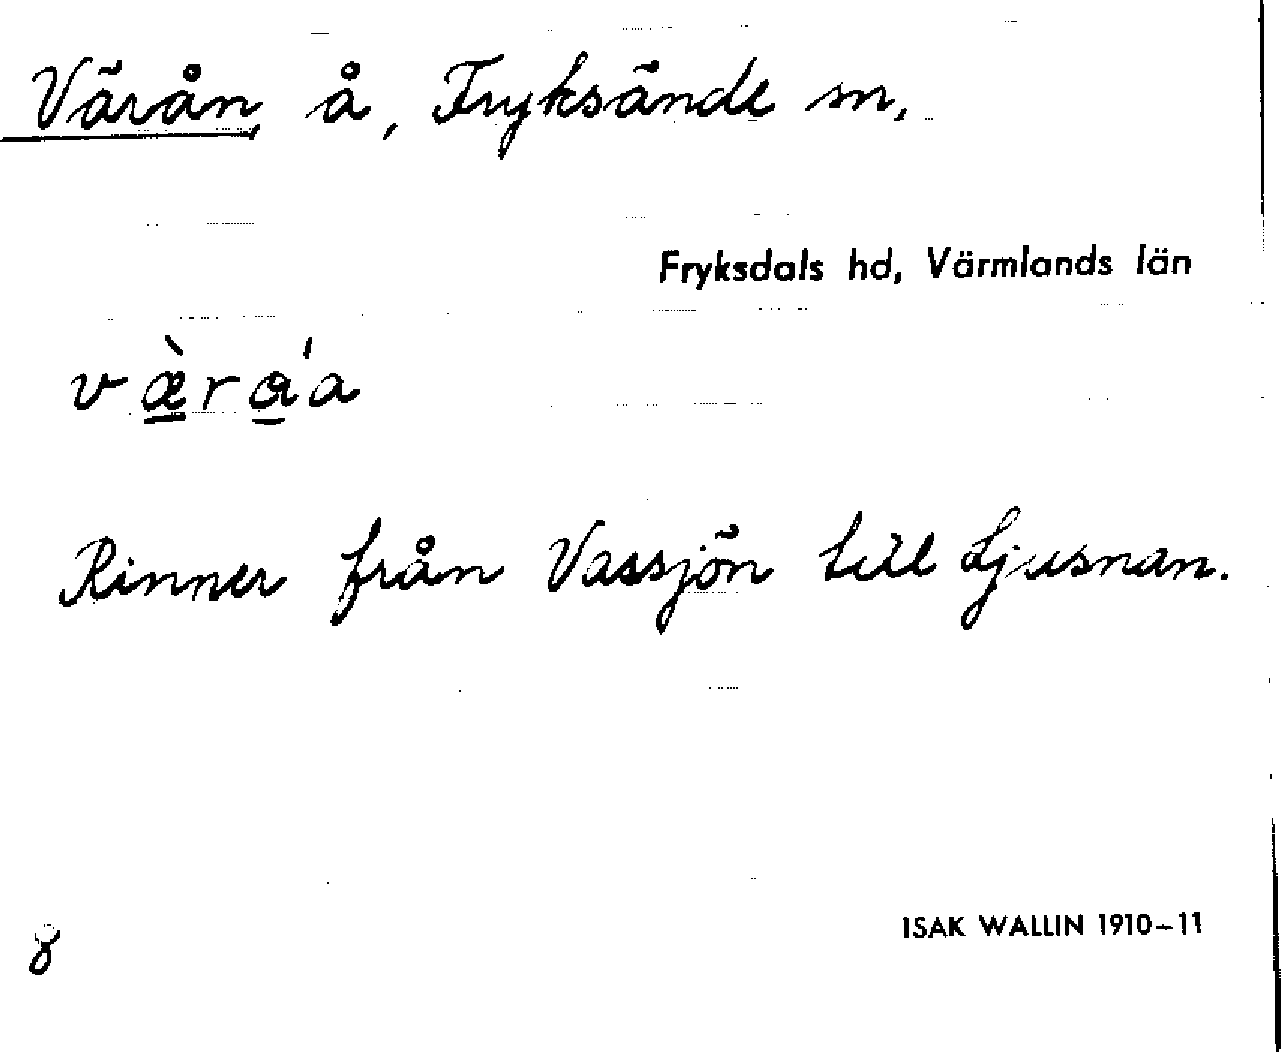 Värån, å, Fryksände sn,
Fryksdals hd, Värmlands län
væ̀ra̲'a
Rinner från Vassjön till Ljusnan.
8
ISAK WALLIN 1910–11